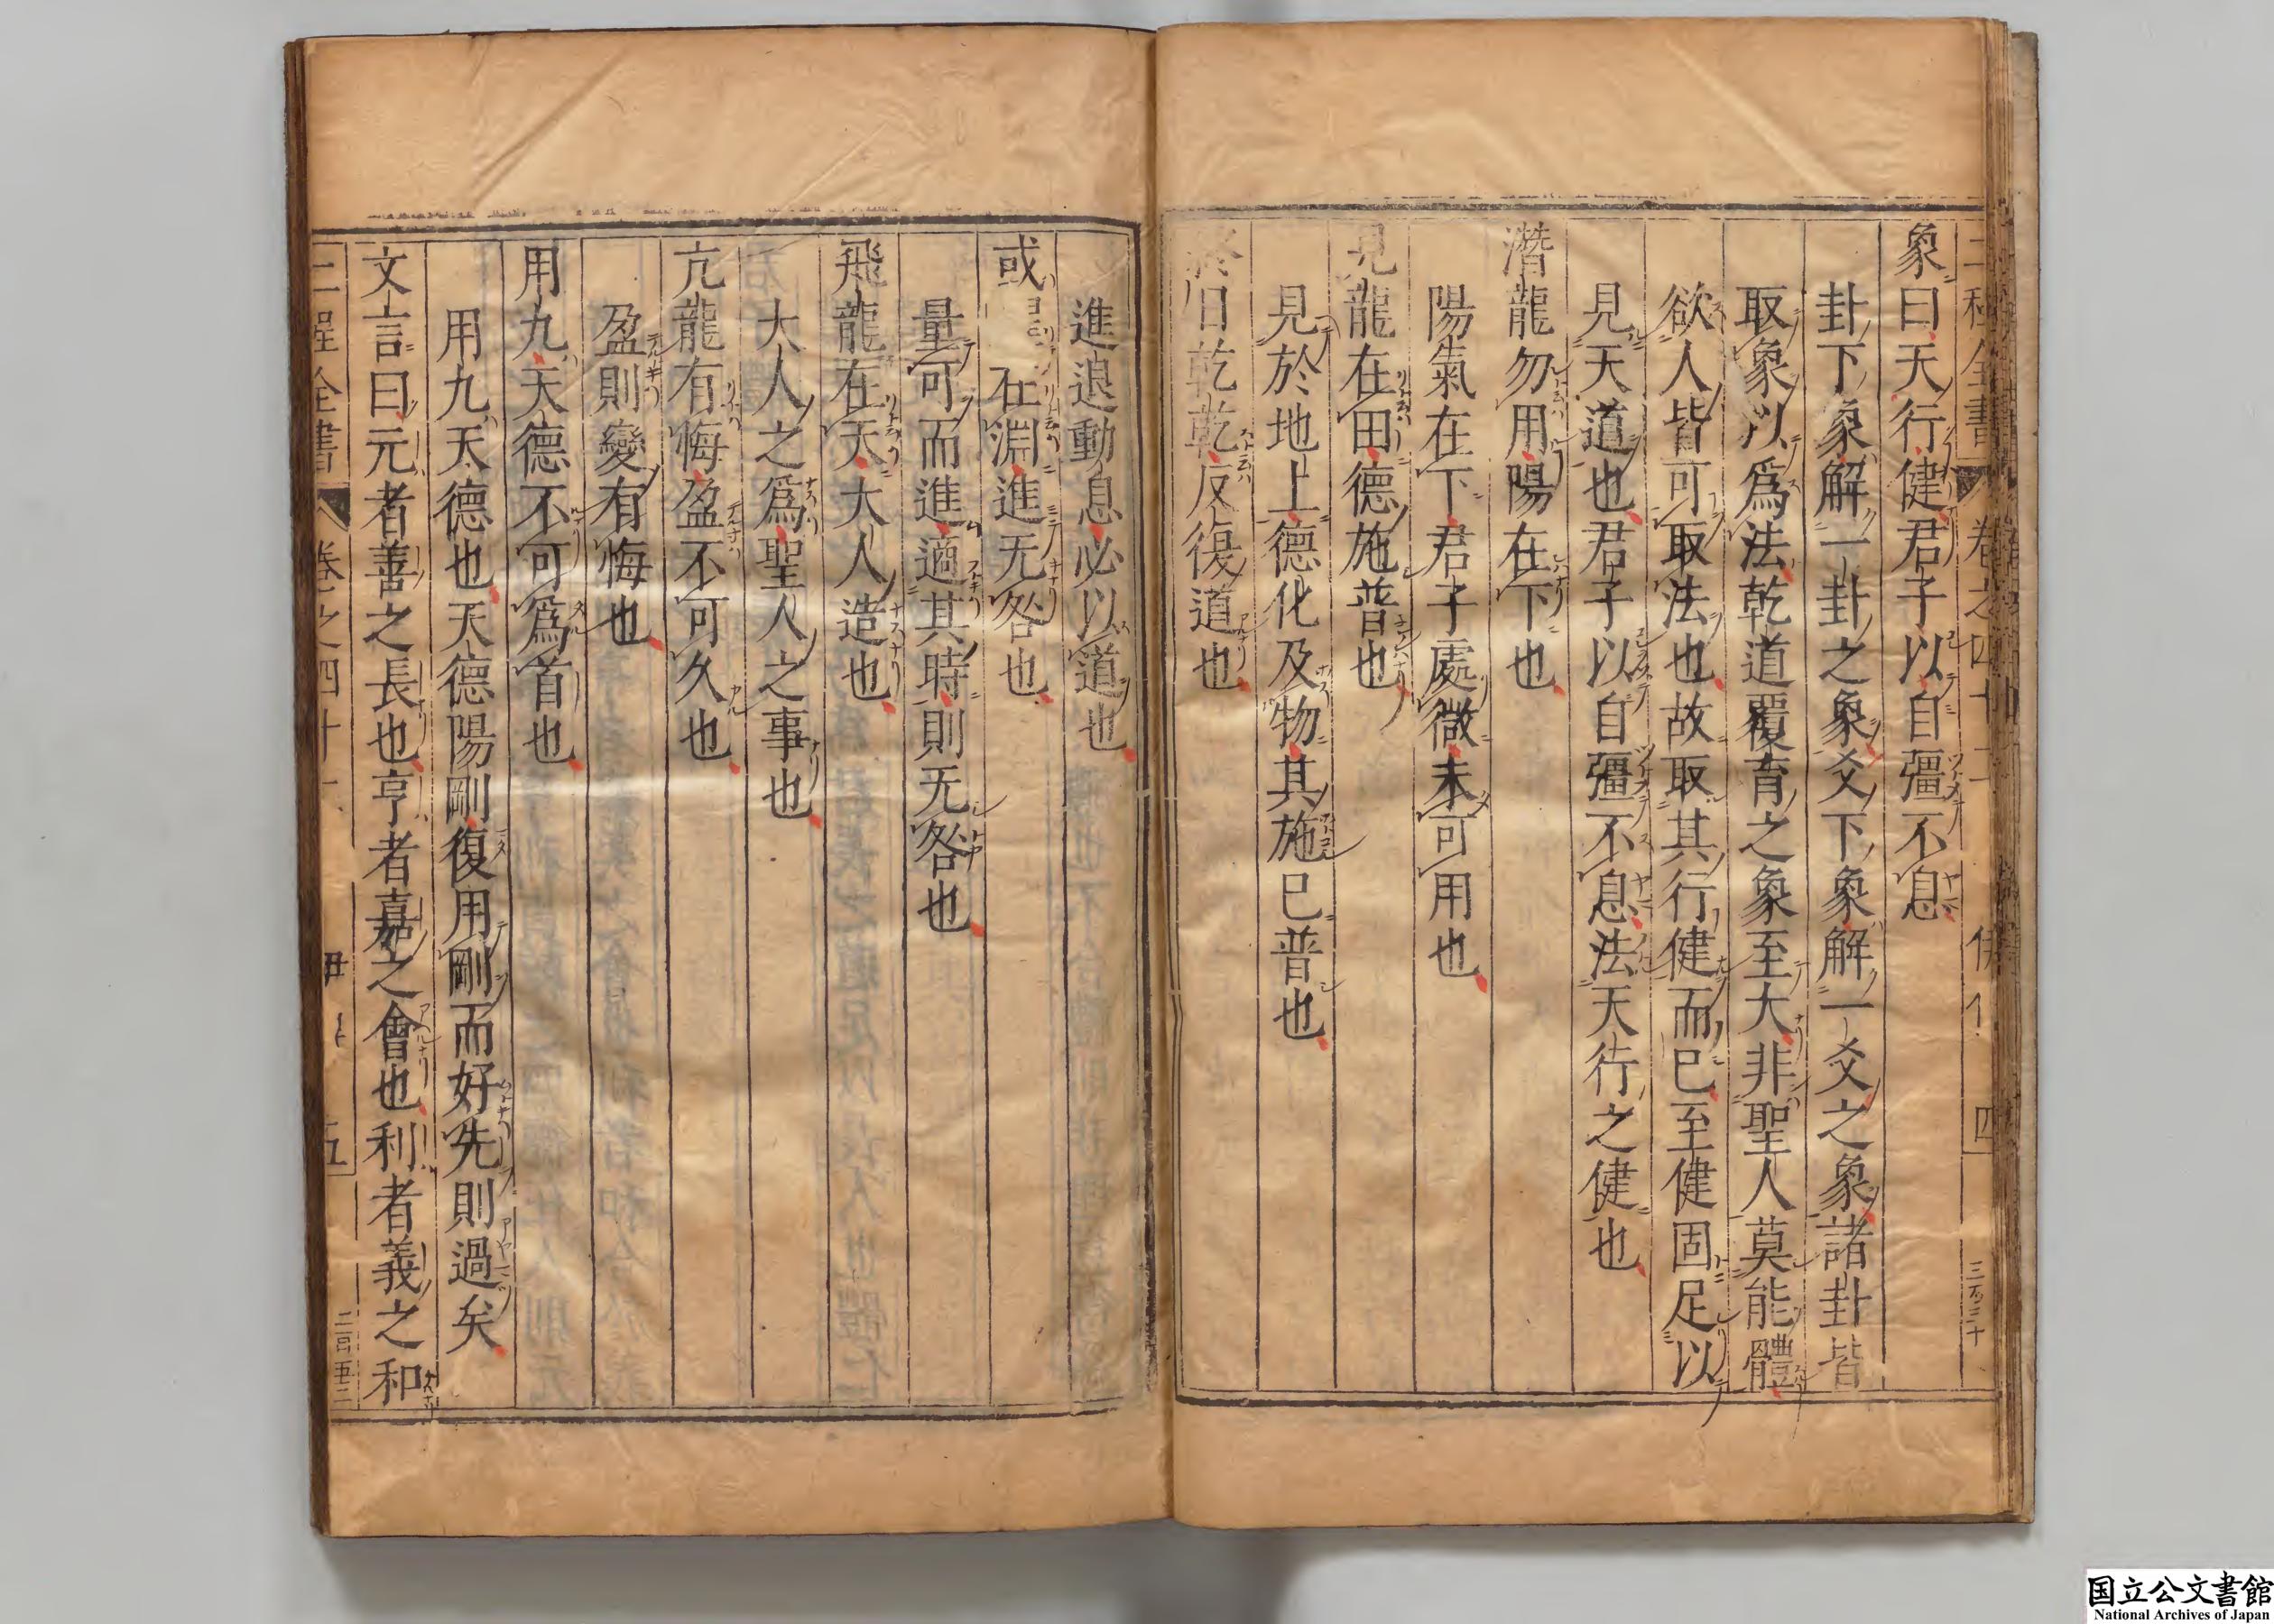 象曰天行健君子以自彊不息
卦下象解一卦之象爻下象解一爻之象諸卦皆
取象以爲法乾道覆育之象至大非聖人莫能體
欲人皆可取法也故取其行健而已至健固足以
見天道也君子以自彊不息法天行之健也
潛龍勿用陽在下也
陽氣在下君子處微未可用也
見龍在田德施普也
見於地上德化及物其施已普也
終日乾乾反復道也
進退動息必以道也
或 在淵進无咎也
量可而進適其時則无咎也
飛龍在天大人造也
大人之爲聖人之事也
亢龍有悔盈不可久也
盈則變有悔也
用九天德不可爲首也
用九天德也天德陽剛復用剛而好先則過矣
文言曰元者善之長也亨者嘉之會也利者義之和
二程全書 卷之四十 五
国立公文書館
National Archives of Japan